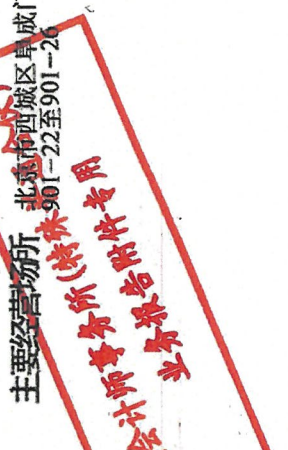 主要经营场所 北京市西城区阜成门
901-22至901-26
会计师事务所(特殊
业务报告附件专用